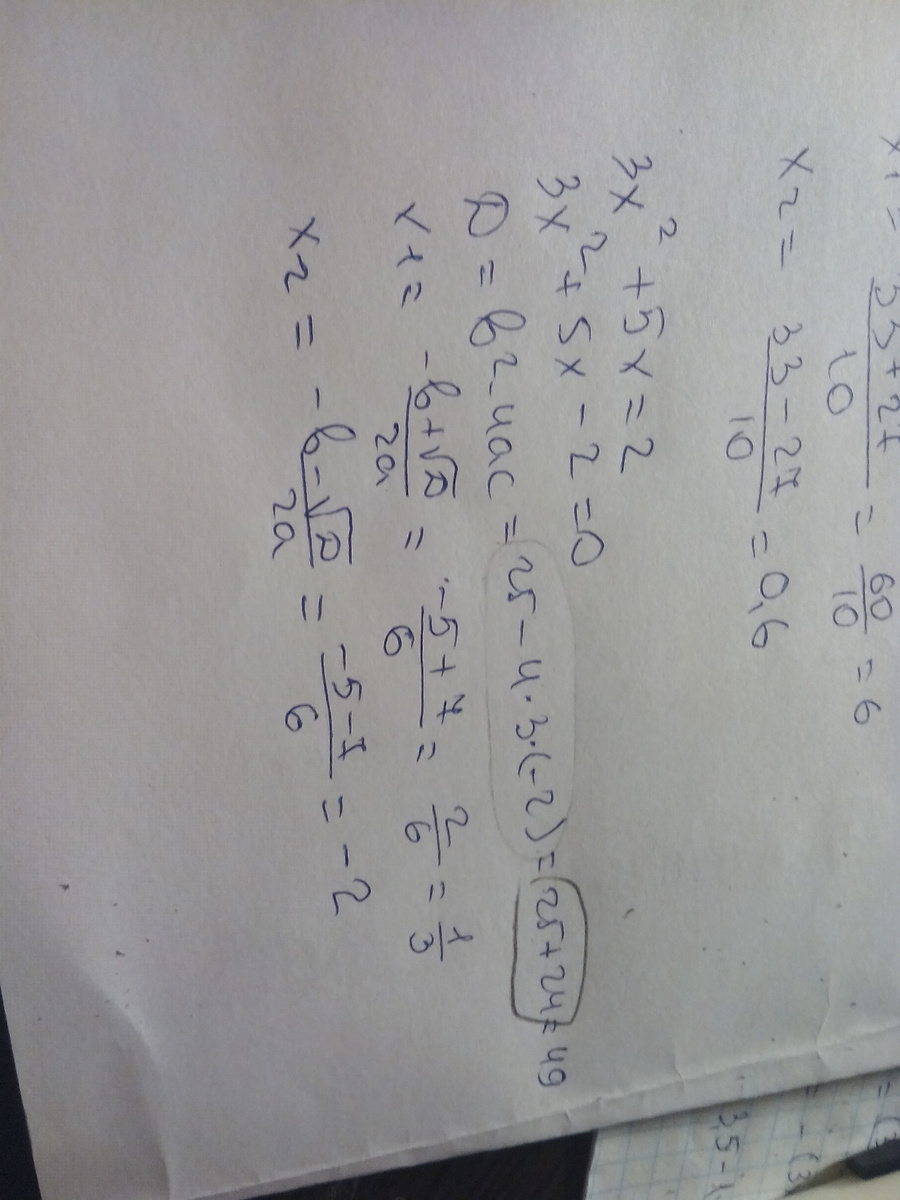 x1 = 33+27/10 = 60/10 = 6
x2 = 33-27/10 = 0,6
3x² + 5x = 2
3x² + 5x - 2 = 0
D = в² - 4ac = 25 - 4·3·(-2) = 25+24 = 49
x1 = -в+√D/2a = -5+7/6 = 2/6 = 1/3
x2 = -в-√D/2a = -5-7/6 = -2